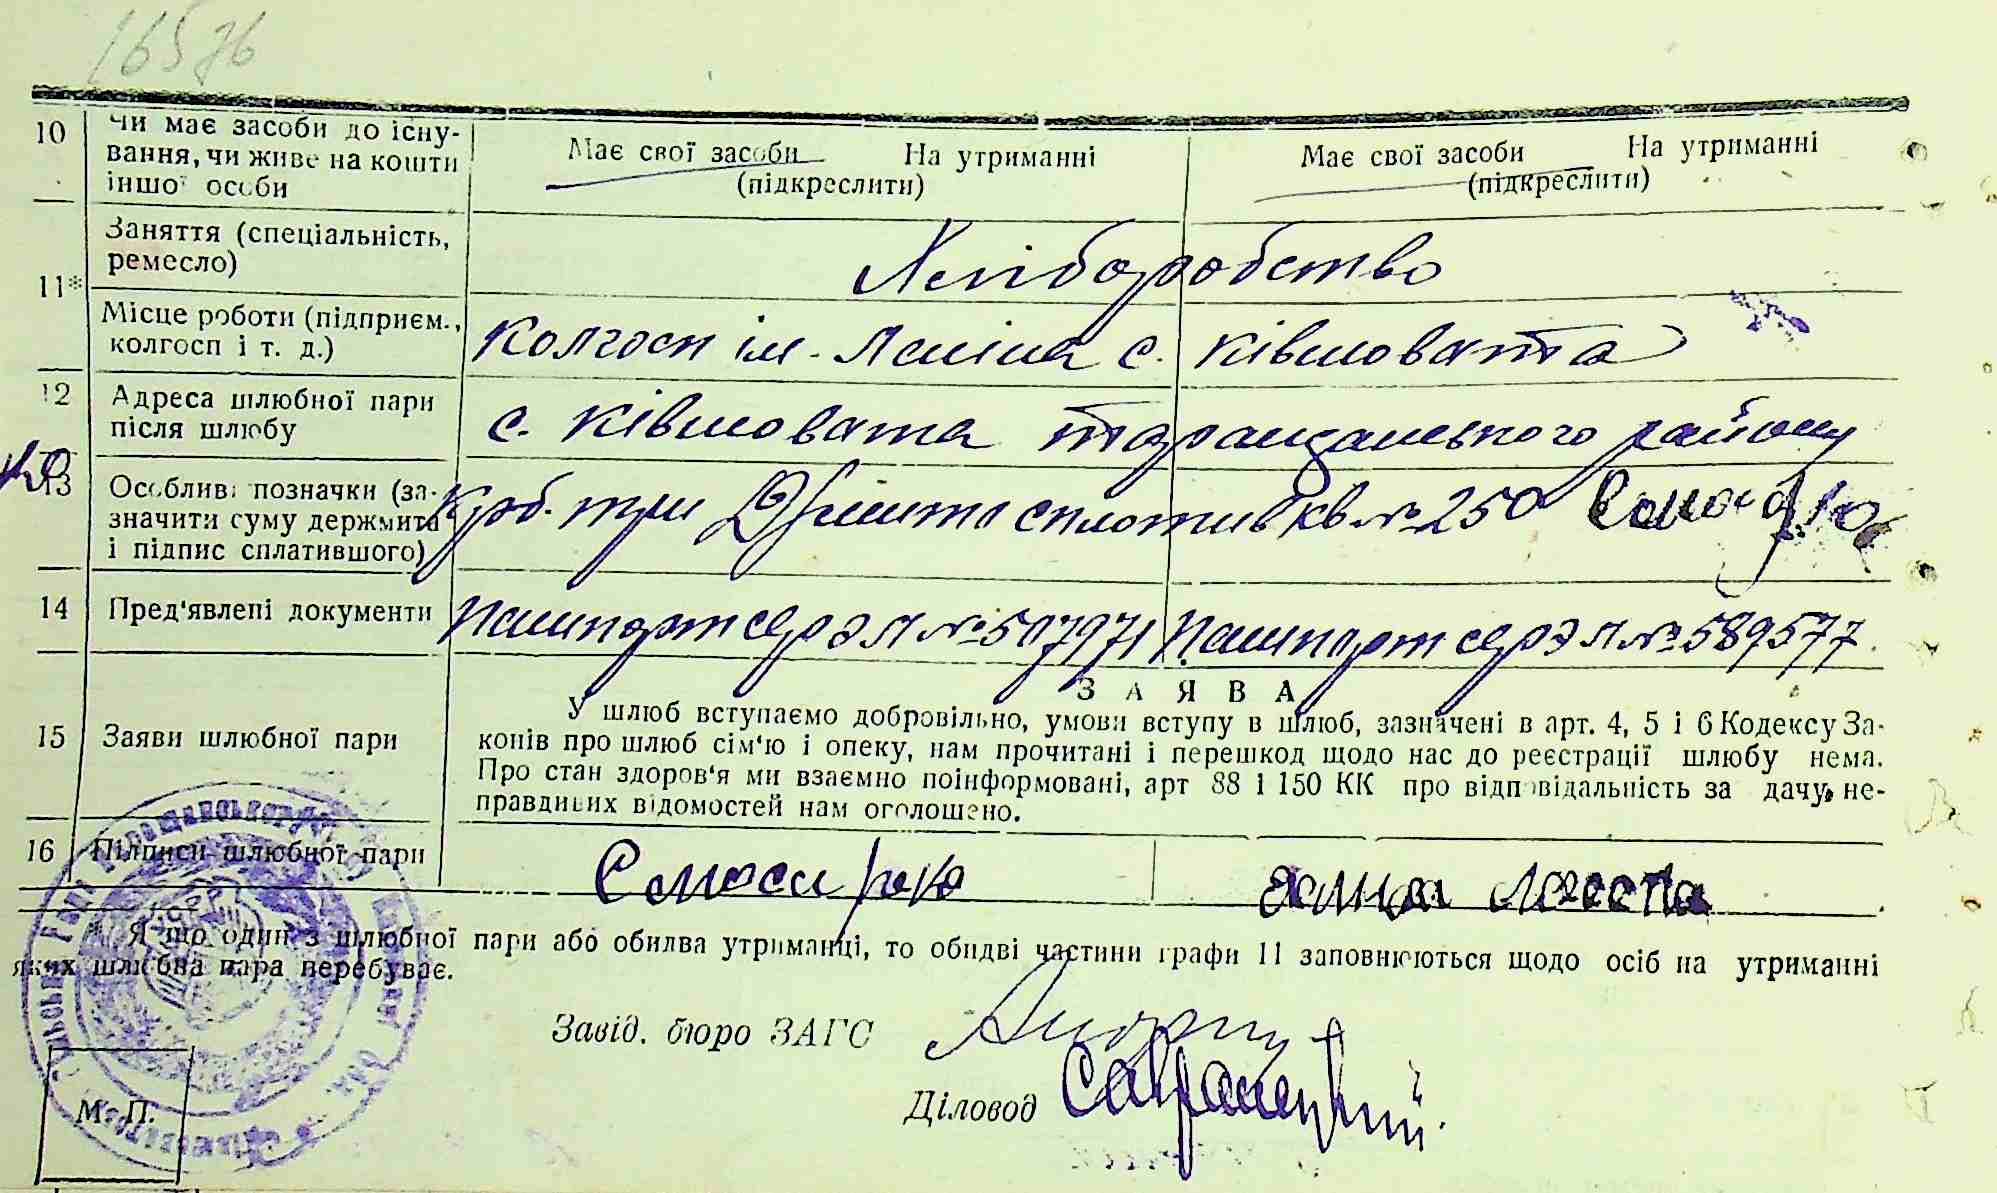 16576
10 Чи має засоби до існу-
вання, чи живе на кошти
іншої особи
Має свої засоби На утриманні
(підкреслити)
Має свої засоби На утриманні
(підкреслити)
11* Заняття (спеціальність,
ремесло)
Хліборобство
Місце роботи (підприєм.,
колгосп і т. д.)
Колгосп ім. Леніна с. Ківшовата
12 Адреса шлюбної пари
після шлюбу
с. Ківшовата Таращанського району
13 Особливі позначки (за-
значити суму держмита
і підпис сплатившого)
Крб. три сплотив кв № 250
14 Пред'явлені документи
Пашпорт сер ЭЛ № 507971 Пашпорт сер ЭЛ № 589577
З А Я В А
15 Заяви шлюбної пари
У шлюб вступаємо добровільно, умови вступу в шлюб, зазначені в арт. 4, 5 і 6 Кодексу За-
конів про шлюб сім'ю і опеку, нам прочитані і перешкод щодо нас до реєстрації шлюбу нема.
Про стан здоров'я ми взаємно поінформовані, арт 88 і 150 КК про відповідальність за дачу не-
правдивих відомостей нам оголошено.
16 Підписи шлюбної пари
Якщо один з шлюбної пари або обидва утриманці, то обидві частини графи 11 заповнюються щодо осіб на утриманні
яких шлюбна пара перебуває.
Завід. бюро ЗАГС
Діловод
М. П.